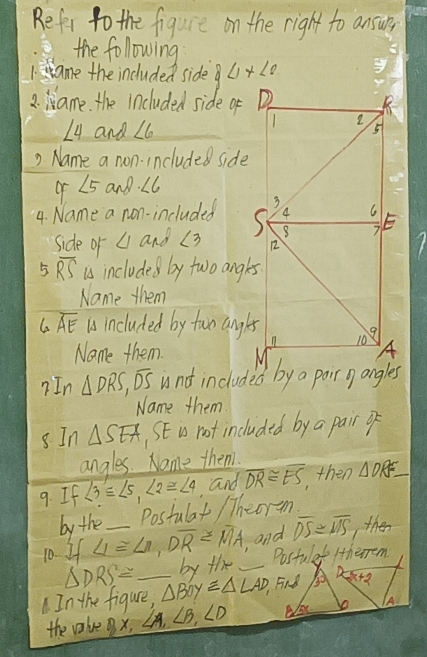 Refer to the figure on the right to answer
the following
1. Name the included side of ∠1 + ∠2
2. Name the included side of
∠4 and ∠6
3. Name a non-included side
of ∠5 and ∠6
4. Name a non-included
side of ∠1 and ∠3
5. RS is included by two angles.
Name them
6. AE is included by two angles
Name them.
7. In △DRS, DS is not included by a pair of angles
Name them
8. In △SEA, SE is not included by a pair of
angles. Name them.
9. If ∠3 ≅ ∠5, ∠2 ≅ ∠4 and DR ≅ ES, then △DRE __
by the __ Postulate/Theorem
10. If ∠1 ≅ ∠11, DR ≅ MA, and DS ≅ MS, then
△DRS ≅ __ by the __ Postulate/theorem
11. In the figure, △BOY ≅ △LAD, Find
the value of x, ∠A, ∠B, ∠D
D R
1 2 5
3 4 6
S E
8 7
12
9
11 10
M A
D
O A